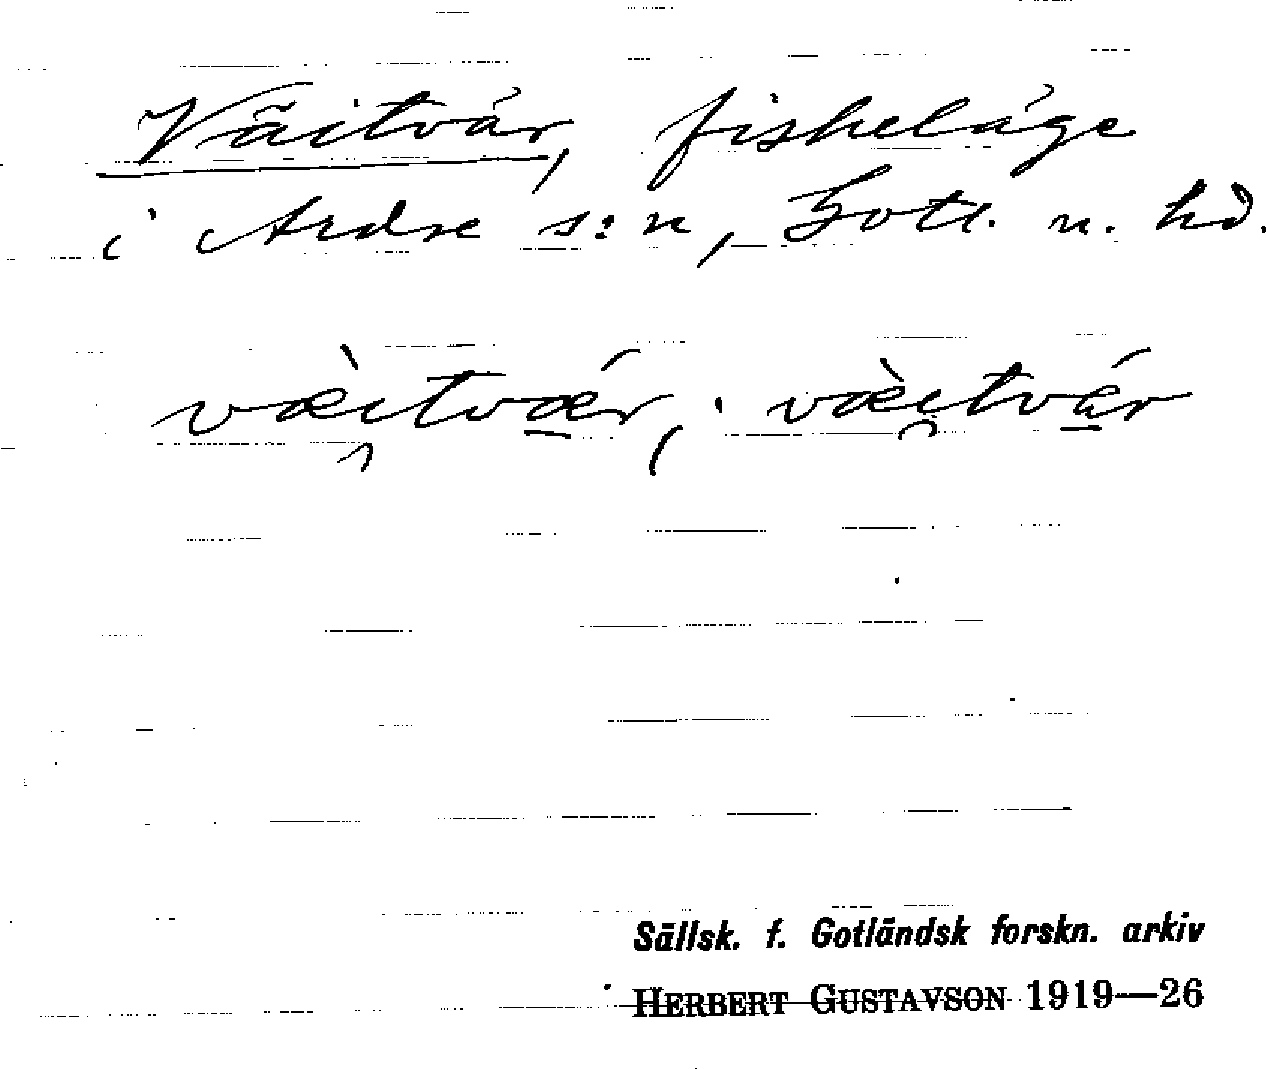 Väitvár, fiskeläge
i Ardre s:n, Gotl. n. hd.
væ̀i̯tvǽ̱r, væ̀i̯tvá̱r
Sällsk. f. Gotländsk forskn. arkiv
HERBERT GUSTAVSON 1919—26